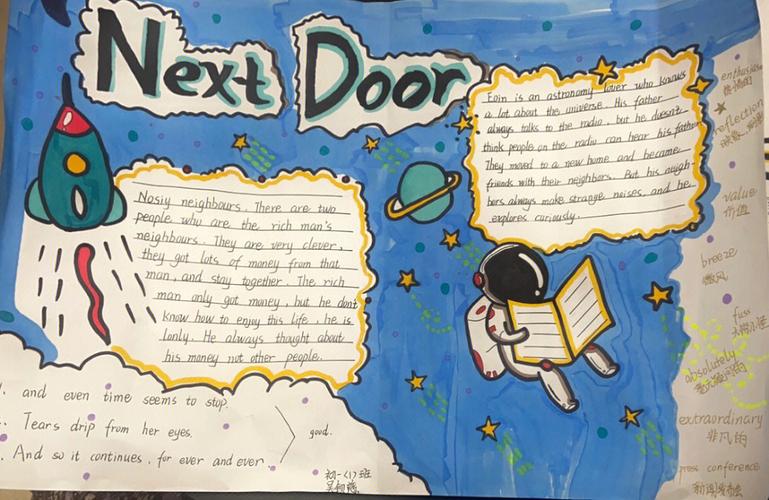 Next Door
Eoin is an astronomy lover who knows
a lot about the universe. His father
always talks to the radio, but he doesn't
think people on the radio can hear his father
They moved to a new home and became
friends with their neighbors. But his neigh-
bors always make strange noises, and he
explores curiously.
Nosiy neighbours. There are two
people who are the rich man's
neighbours. They are very clever,
they got lots of money from that
man, and stay together. The rich
man only got money, but he dont
know how to enjoy this life, he is
lonly. He always thought about
his money not other people.
and even time seems to stop.
Tears drip from her eyes.
And so it continues, for ever and ever.
good.
初一(1)班
enthusiasm
reflection
value
价值
breeze
微风
fuss
大惊小怪
absolutely
毫无疑问的
extraordinary
非凡的
press conference
新闻发布会